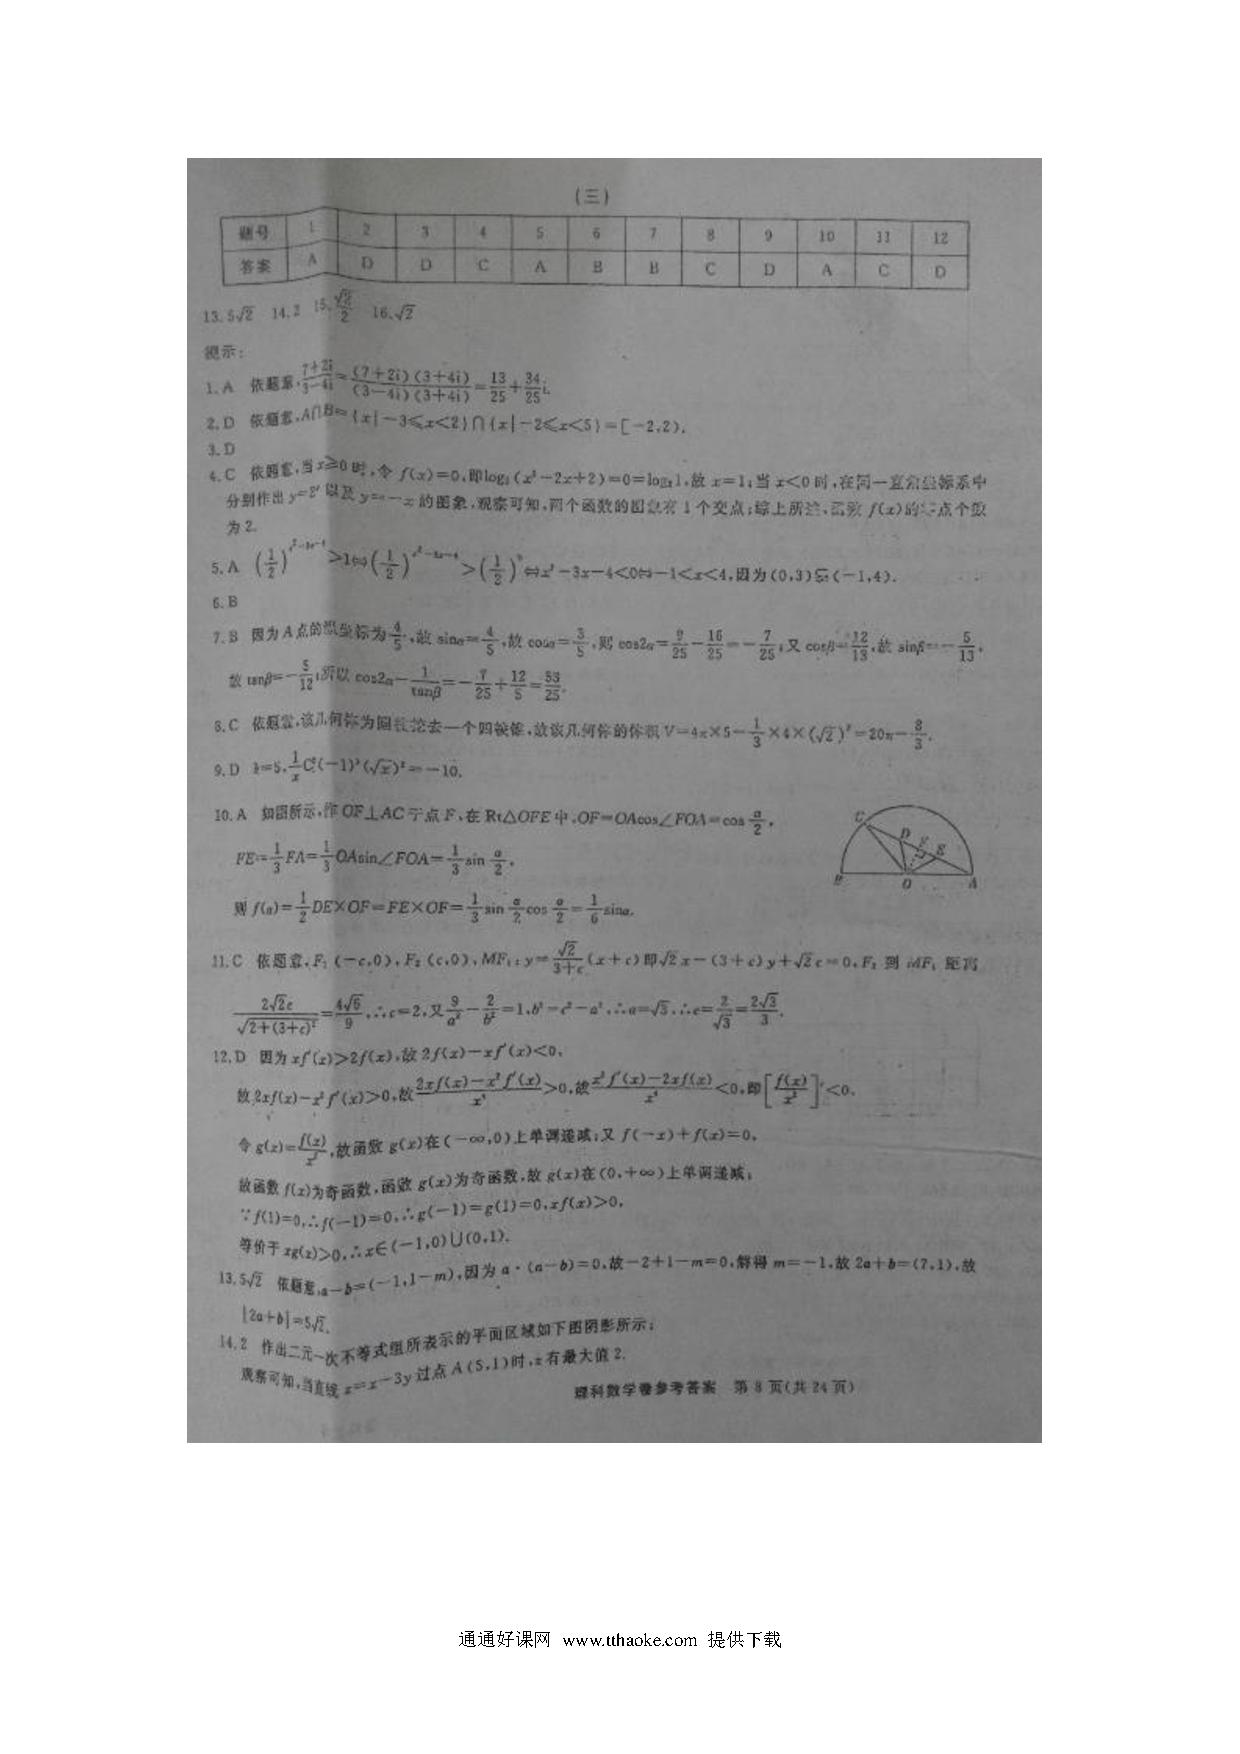 (三)
题号 1 2 3 4 5 6 7 8 9 10 11 12
答案 A D D C A B B C D A C D
13.5√2 14.2 15.√2/2 16.√2
提示:
1.A 依题意,(7+2i)/(3-4i)=(7+2i)(3+4i)/(3-4i)(3+4i)=13/25+34/25i.
2.D 依题意,A∩B={x|-3≤x<2}∩{x|-2≤x<5}=[-2,2).
3.D
4.C 依题意,当x≥0时,令f(x)=0,即log₂(x²-2x+2)=0=log₂1,故x=1;当x<0时,在同一直角坐标系中
分别作出 以及y=-x的图象,观察可知,两个函数的图象有1个交点;综上所述,函数f(x)的零点个数
为2.
5.A (1/2)^(x²-3x-4)>1⇔(1/2)^(x²-3x-4)>(1/2)⁰⇔x²-3x-4<0⇔-1<x<4,因为(0,3)⫋(-1,4).
6.B
7.B 因为A点的纵坐标为4/5,故sinα=4/5,故cosα=3/5,则cos2α=9/25-16/25=-7/25;又cosβ=12/13,故sinβ=-5/13,
故tanβ=-5/12;所以cos2α-1/tanβ=-7/25+12/5=53/25.
8.C 依题意,该几何体为圆柱挖去一个四棱锥,故该几何体的体积V=4π×5-1/3×4×(√2)²=20π-8/3.
9.D k=5, (-1)³(√x)²=-10.
10.A 如图所示,作OF⊥AC于点F,在Rt△OFE中,OF=OAcos∠FOA=cos α/2,
FE=1/3FA=1/3OAsin∠FOA=1/3sin α/2,
则f(α)=1/2DE×OF=FE×OF=1/3sin α/2cos α/2=1/6sinα.
C D F E B O A
11.C 依题意,F₁(-c,0),F₂(c,0),MF₁:y=√2/(3+c)(x+c)即√2x-(3+c)y+√2c=0,F₂到MF₁距离
2√2c/√(2+(3+c)²)=4√6/9,∴c=2,又9/a²-2/b²=1,b²=c²-a²,∴a=√3,∴e=2/√3=2√3/3.
12.D 因为xf′(x)>2f(x),故2f(x)-xf′(x)<0,
故2xf(x)-x²f′(x)>0,故(2xf(x)-x²f′(x))/x⁴>0,故(x²f′(x)-2xf(x))/x⁴<0,即[f(x)/x²]′<0.
令g(x)=f(x)/x²,故函数g(x)在(-∞,0)上单调递减;又f(-x)+f(x)=0,
故函数f(x)为奇函数,函数g(x)为奇函数,故g(x)在(0,+∞)上单调递减;
∵f(1)=0,∴f(-1)=0,∴g(-1)=g(1)=0,xf(x)>0,
等价于xg(x)>0,∴x∈(-1,0)∪(0,1).
13.5√2 依题意,a-b=(-1,1-m),因为a·(a-b)=0,故-2+1-m=0,解得m=-1,故2a+b=(7,1),故
|2a+b|=5√2.
14.2 作出二元一次不等式组所表示的平面区域如下图阴影所示;
观察可知,当直线z=x-3y过点A(5,1)时,z有最大值2.
理科数学卷参考答案 第8页(共24页)
通通好课网 www.tthaoke.com 提供下载